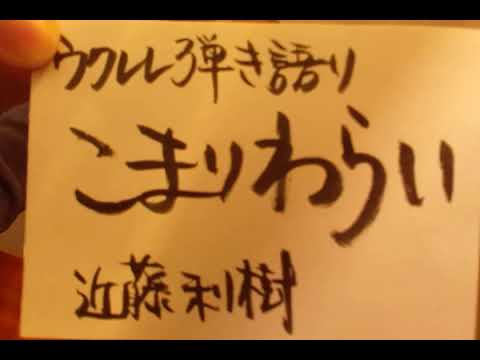 ウクレレ弾き語り
こまりわらい
近藤利樹